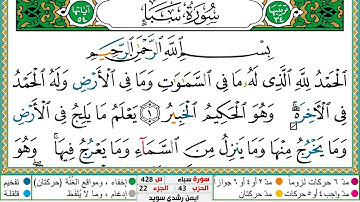 ترتيبها ٣٤ سُورَةُ سَبَإٍ آياتها ٥٤
بِسْمِ اللَّهِ الرَّحْمَٰنِ الرَّحِيمِ
الْحَمْدُ لِلَّهِ الَّذِي لَهُ مَا فِي السَّمَاوَاتِ وَمَا فِي الْأَرْضِ وَلَهُ الْحَمْدُ
فِي الْآخِرَةِ ۚ وَهُوَ الْحَكِيمُ الْخَبِيرُ ١ يَعْلَمُ مَا يَلِجُ فِي الْأَرْضِ
وَمَا يَخْرُجُ مِنْهَا وَمَا يَنزِلُ مِنَ السَّمَاءِ وَمَا يَعْرُجُ فِيهَا ۚ وَهُوَ
مدّ ٦ حركات لزوماً مدّ ٢ أو ٤ أو ٦ جوازاً سورة سباء ص 428 إخفاء، ومواقع الغُنَّة (حركتان) تفخيم
مدّ واجب ٤ أو ٥ حركات مدّ حركتان الحزب 43 الجزء 22 إدغام، وما لا يُلفَظ قلقلة
ايمن رشدي سويد